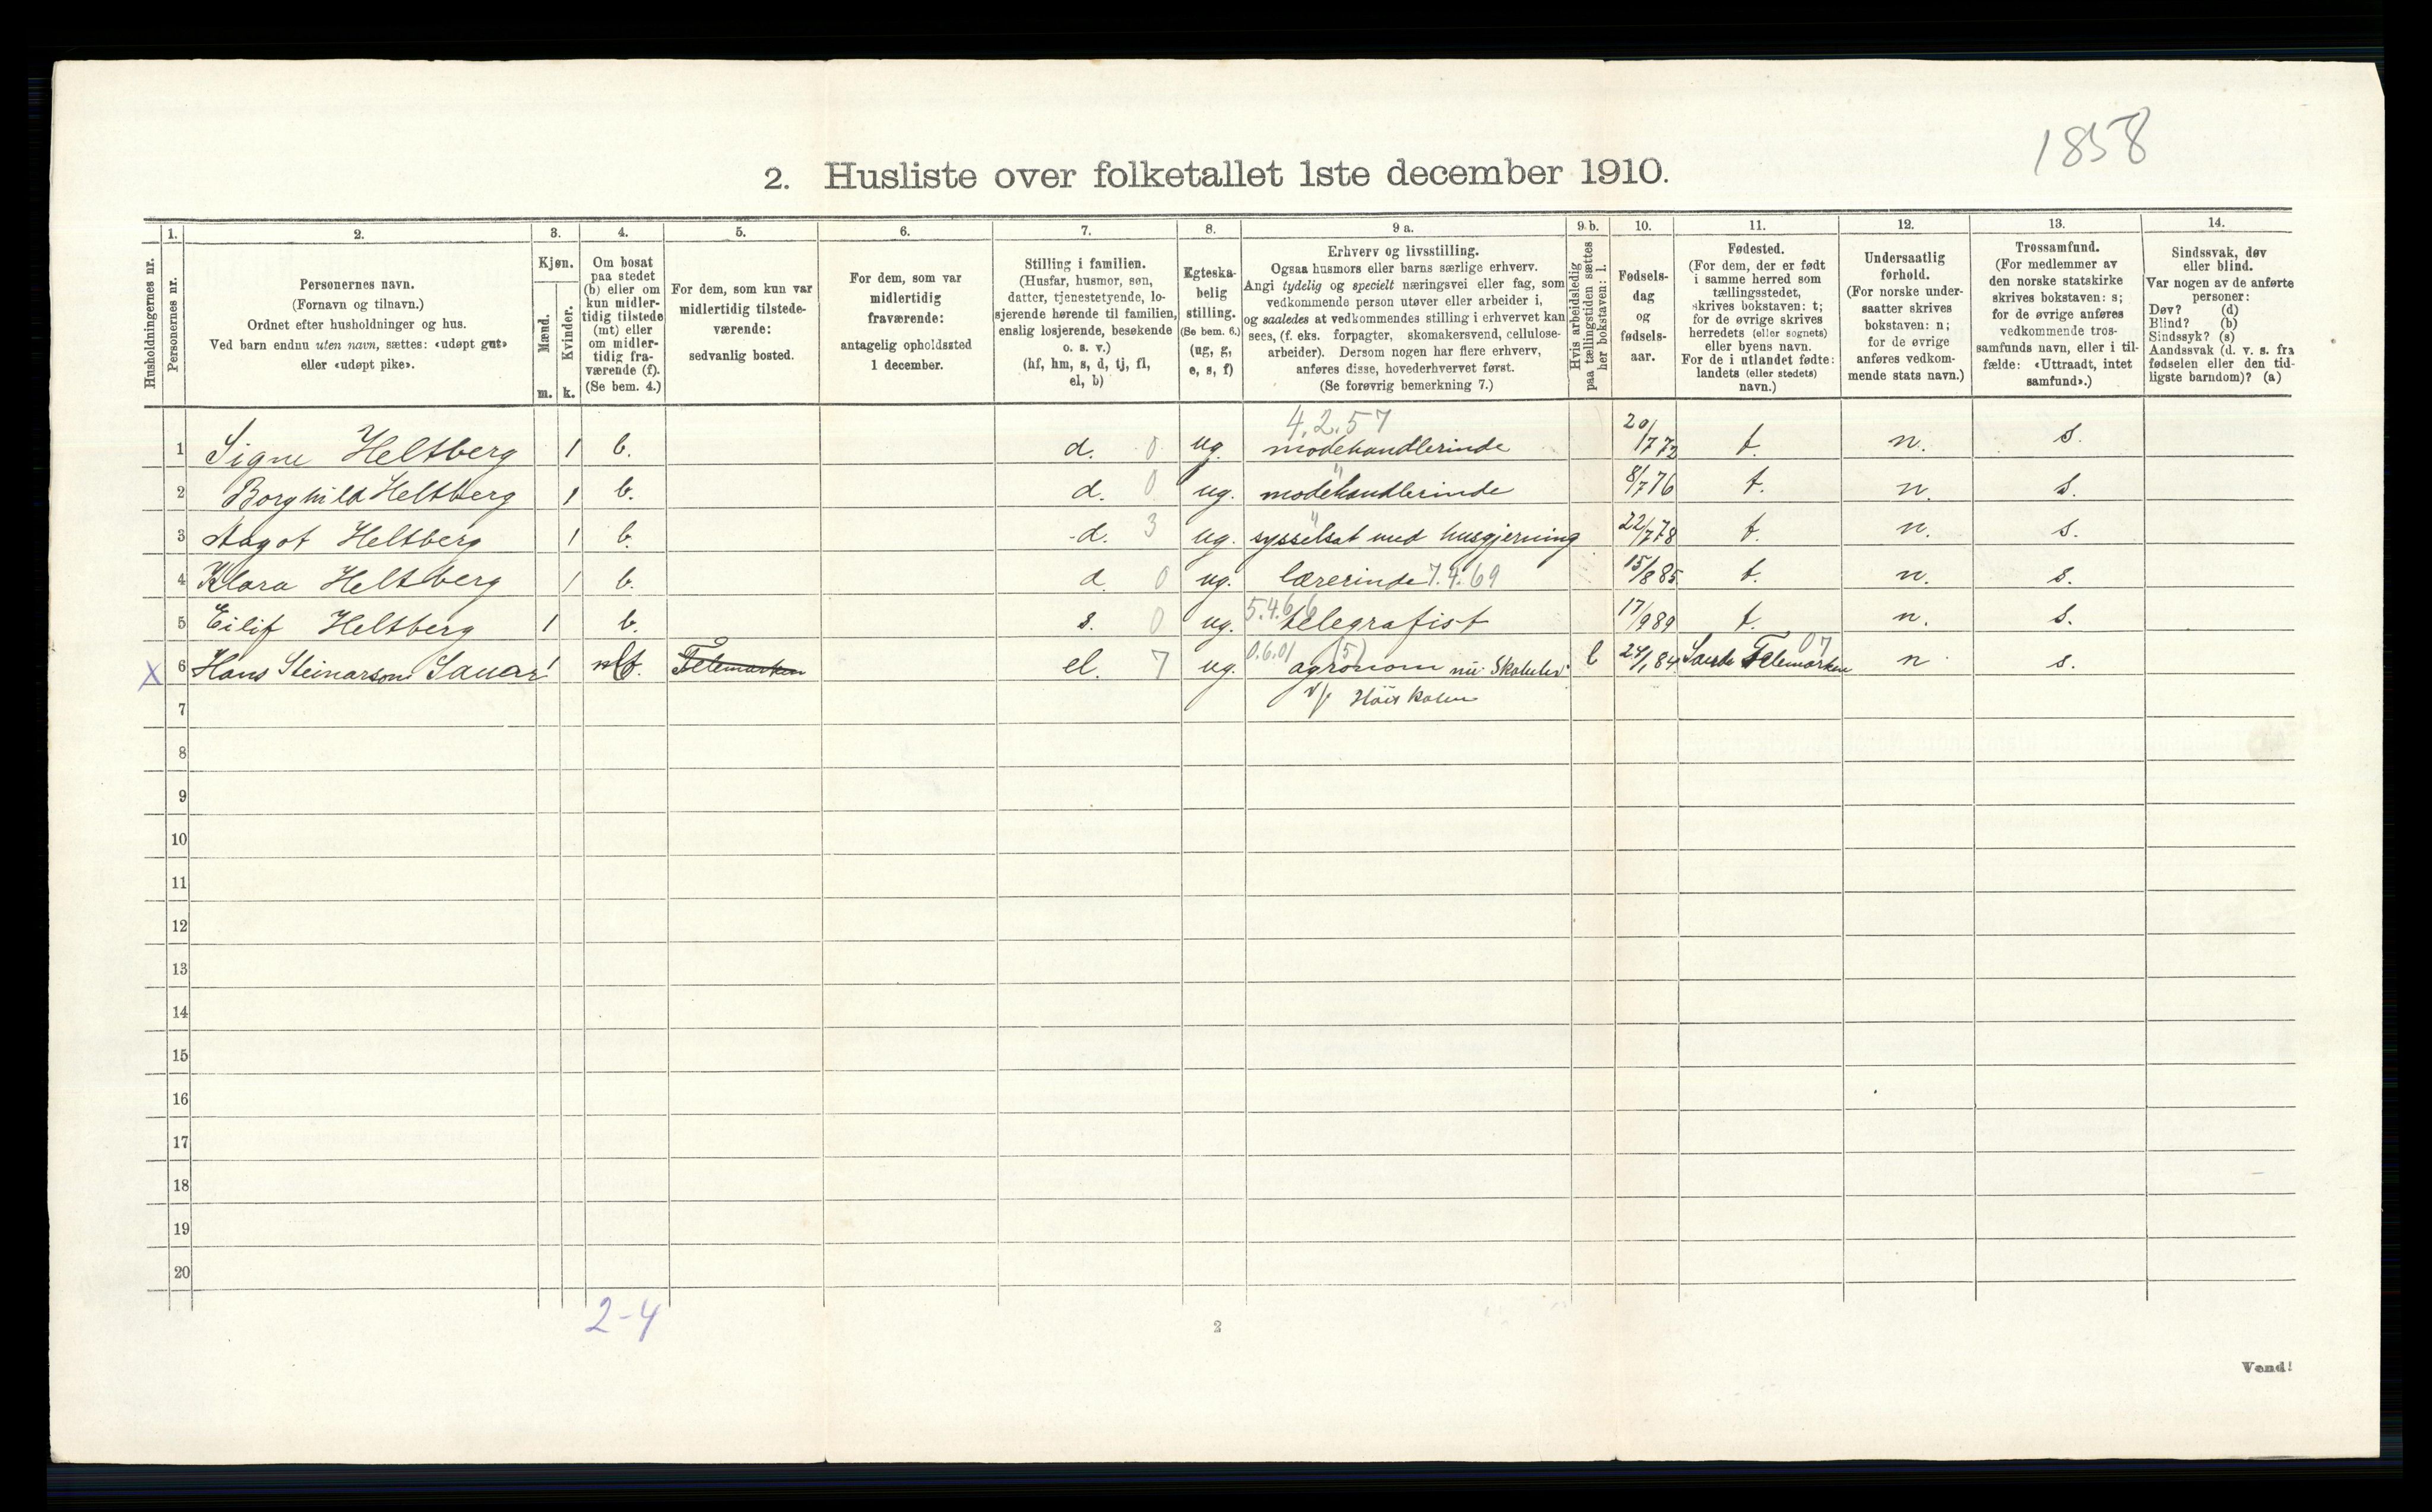 1858
2. Husliste over folketallet 1ste december 1910.
Husholdningernes nr.
1. Personernes nr.
2. Personernes navn.
(Fornavn og tilnavn.)
Ordnet efter husholdninger og hus.
Ved barn endnu uten navn, sættes: «udøpt gut»
eller «udøpt pike».
3. Kjøn.
Mænd. m.
Kvinder. k.
4. Om bosat
paa stedet
(b) eller om
kun midler-
tidig tilstede
(mt) eller
om midler-
tidig fra-
værende (f).
(Se bem. 4.)
5. For dem, som kun var
midlertidig tilstede-
værende:
sedvanlig bosted.
6. For dem, som var
midlertidig
fraværende:
antagelig opholdssted
1 december.
7. Stilling i familien.
(Husfar, husmor, søn,
datter, tjenestetyende, lo-
sjerende hørende til familien,
enslig losjerende, besøkende
o. s. v.)
(hf, hm, s, d, tj, fl,
el, b)
8. Egteska-
belig
stilling.
(Se bem. 6.)
(ug, g,
e, s, f)
9 a. Erhverv og livsstilling.
Ogsaa husmors eller barns særlige erhverv.
Angi tydelig og specielt næringsvei eller fag, som
vedkommende person utøver eller arbeider i,
og saaledes at vedkommendes stilling i erhvervet kan
sees, (f. eks. forpagter, skomakersvend, cellulose-
arbeider). Dersom nogen har flere erhverv,
anføres disse, hovederhvervet først.
(Se forøvrig bemerkning 7.)
9 b. Hvis arbeidsledig
paa tællingstiden sættes
her bokstaven: l.
10. Fødsels-
dag
og
fødsels-
aar.
11. Fødested.
(For dem, der er født
i samme herred som
tællingsstedet,
skrives bokstaven: t;
for de øvrige skrives
herredets (eller sognets)
eller byens navn.
For de i utlandet fødte:
landets (eller stedets)
navn.)
12. Undersaatlig
forhold.
(For norske under-
saatter skrives
bokstaven: n;
for de øvrige
anføres vedkom-
mende stats navn.)
13. Trossamfund.
(For medlemmer av
den norske statskirke
skrives bokstaven: s;
for de øvrige anføres
vedkommende tros-
samfunds navn, eller i til-
fælde: «Uttraadt, intet
samfund».)
14. Sindssvak, døv
eller blind.
Var nogen av de anførte
personer:
Døv? (d)
Blind? (b)
Sindssyk? (s)
Aandssvak (d. v. s. fra
fødselen eller den tid-
ligste barndom)? (a)
4.2.57
1 Signe Heltberg 1 b. d. 0 ug. modehandlerinde 20/7 72 t. n. s.
2 Borghild Heltberg 1 b. d. 0 ug. " modehandlerinde 8/7 76 t. n. s.
3 Aagot Heltberg 1 b. d. 3 ug. " sysselsat med husgjerning 22/7 78 t. n. s.
4 Klara Heltberg 1 b. d 0 ug. lærerinde 7.4.69 15/8 85. t. n. s.
5 Eilif Heltberg 1 b. s. 0 ug. 5.4.66 telegrafist 17/9 89 t. n. s.
X 6 Hans Steinarson Sauar 1 b. Telemarken el. 7 ug. 0.6.01 (5) agronom nu Skoleelev l 24/1 84 Saude Telemarken 07 n s.
7 v/ Høiskolen
8
9
10
11
12
13
14
15
16
17
18
19
20
2-4
2
Vend!